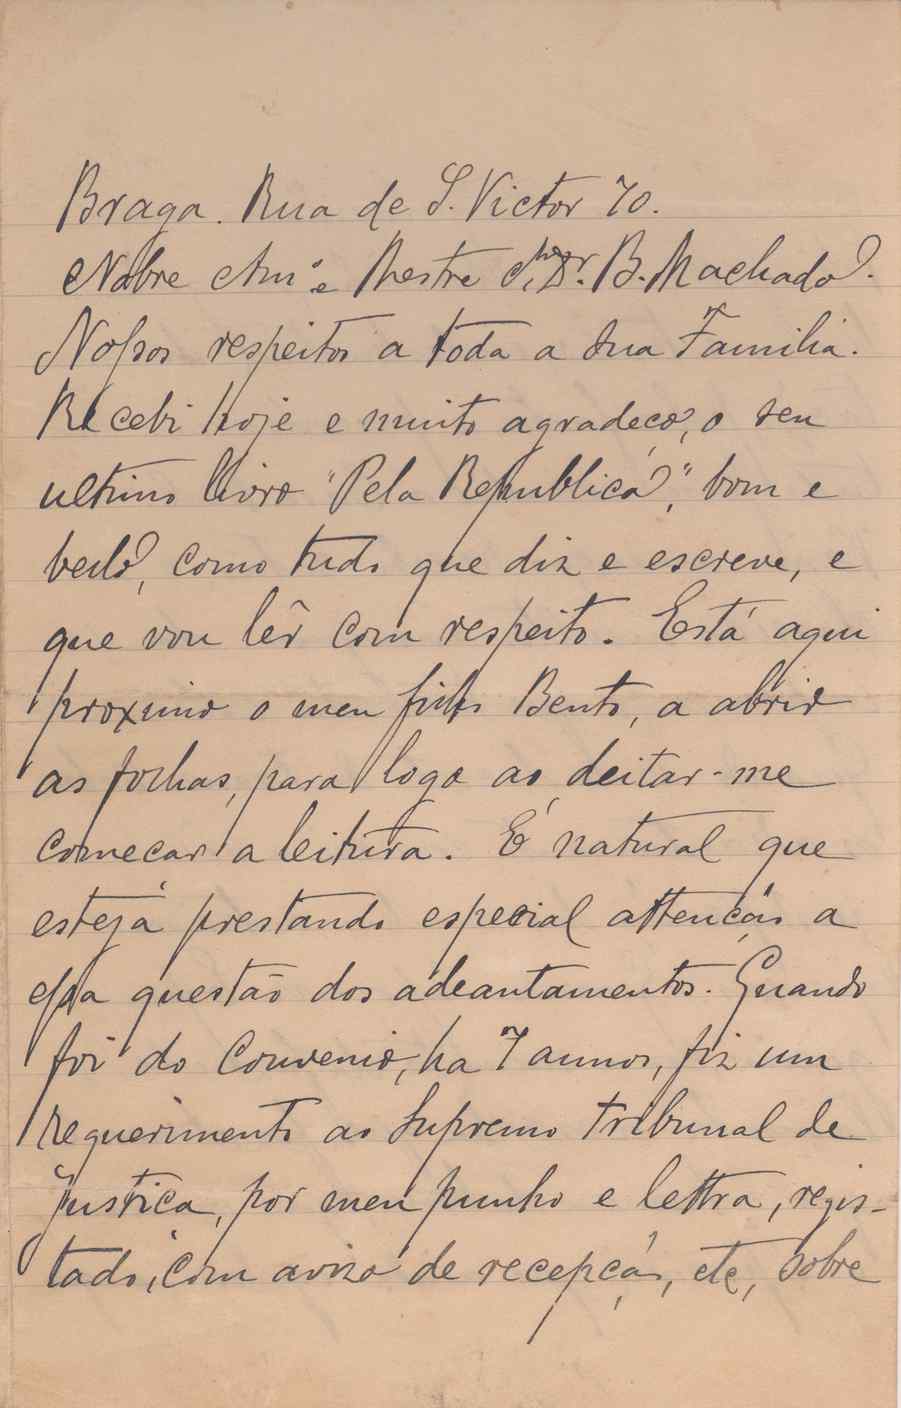 Braga. Rua de S. Victor 70.
Nobre Am.º e Mestre Snr. Dr. B. Machado.
Nossos respeitos a toda a sua Familia.
Recebi hoje e muito agradeço, o seu
ultimo livro "Pela Republica", bom e
bello, como tudo que diz e escreve, e
que vou lêr com respeito. Está aqui
proximo o meu filho Bento, a abrir
as folhas, para logo ao deitar-me
começar a leitura. É natural que
esteja prestando especial attenção a
essa questão dos adeantamentos. Quando
foi do Convenio, ha 7 annos, fiz um
requerimento ao Supremo Tribunal de
Justiça, por meu punho e lettra, regis-
tado, com aviso de recepção, etc, sobre